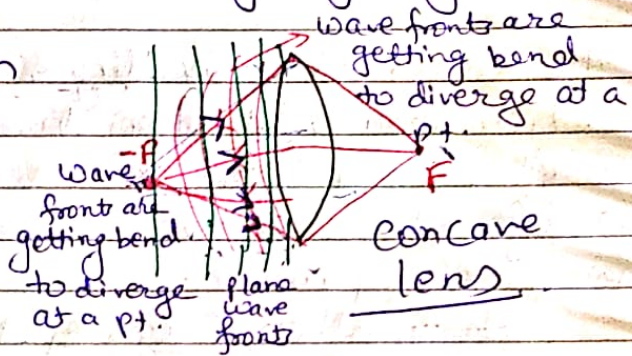 wave fronts are
getting bend
to diverge at a
pt.
F
-F
wave
front are
getting bend.
to diverge
at a pt.
plane
wave
fronts
concave
lens